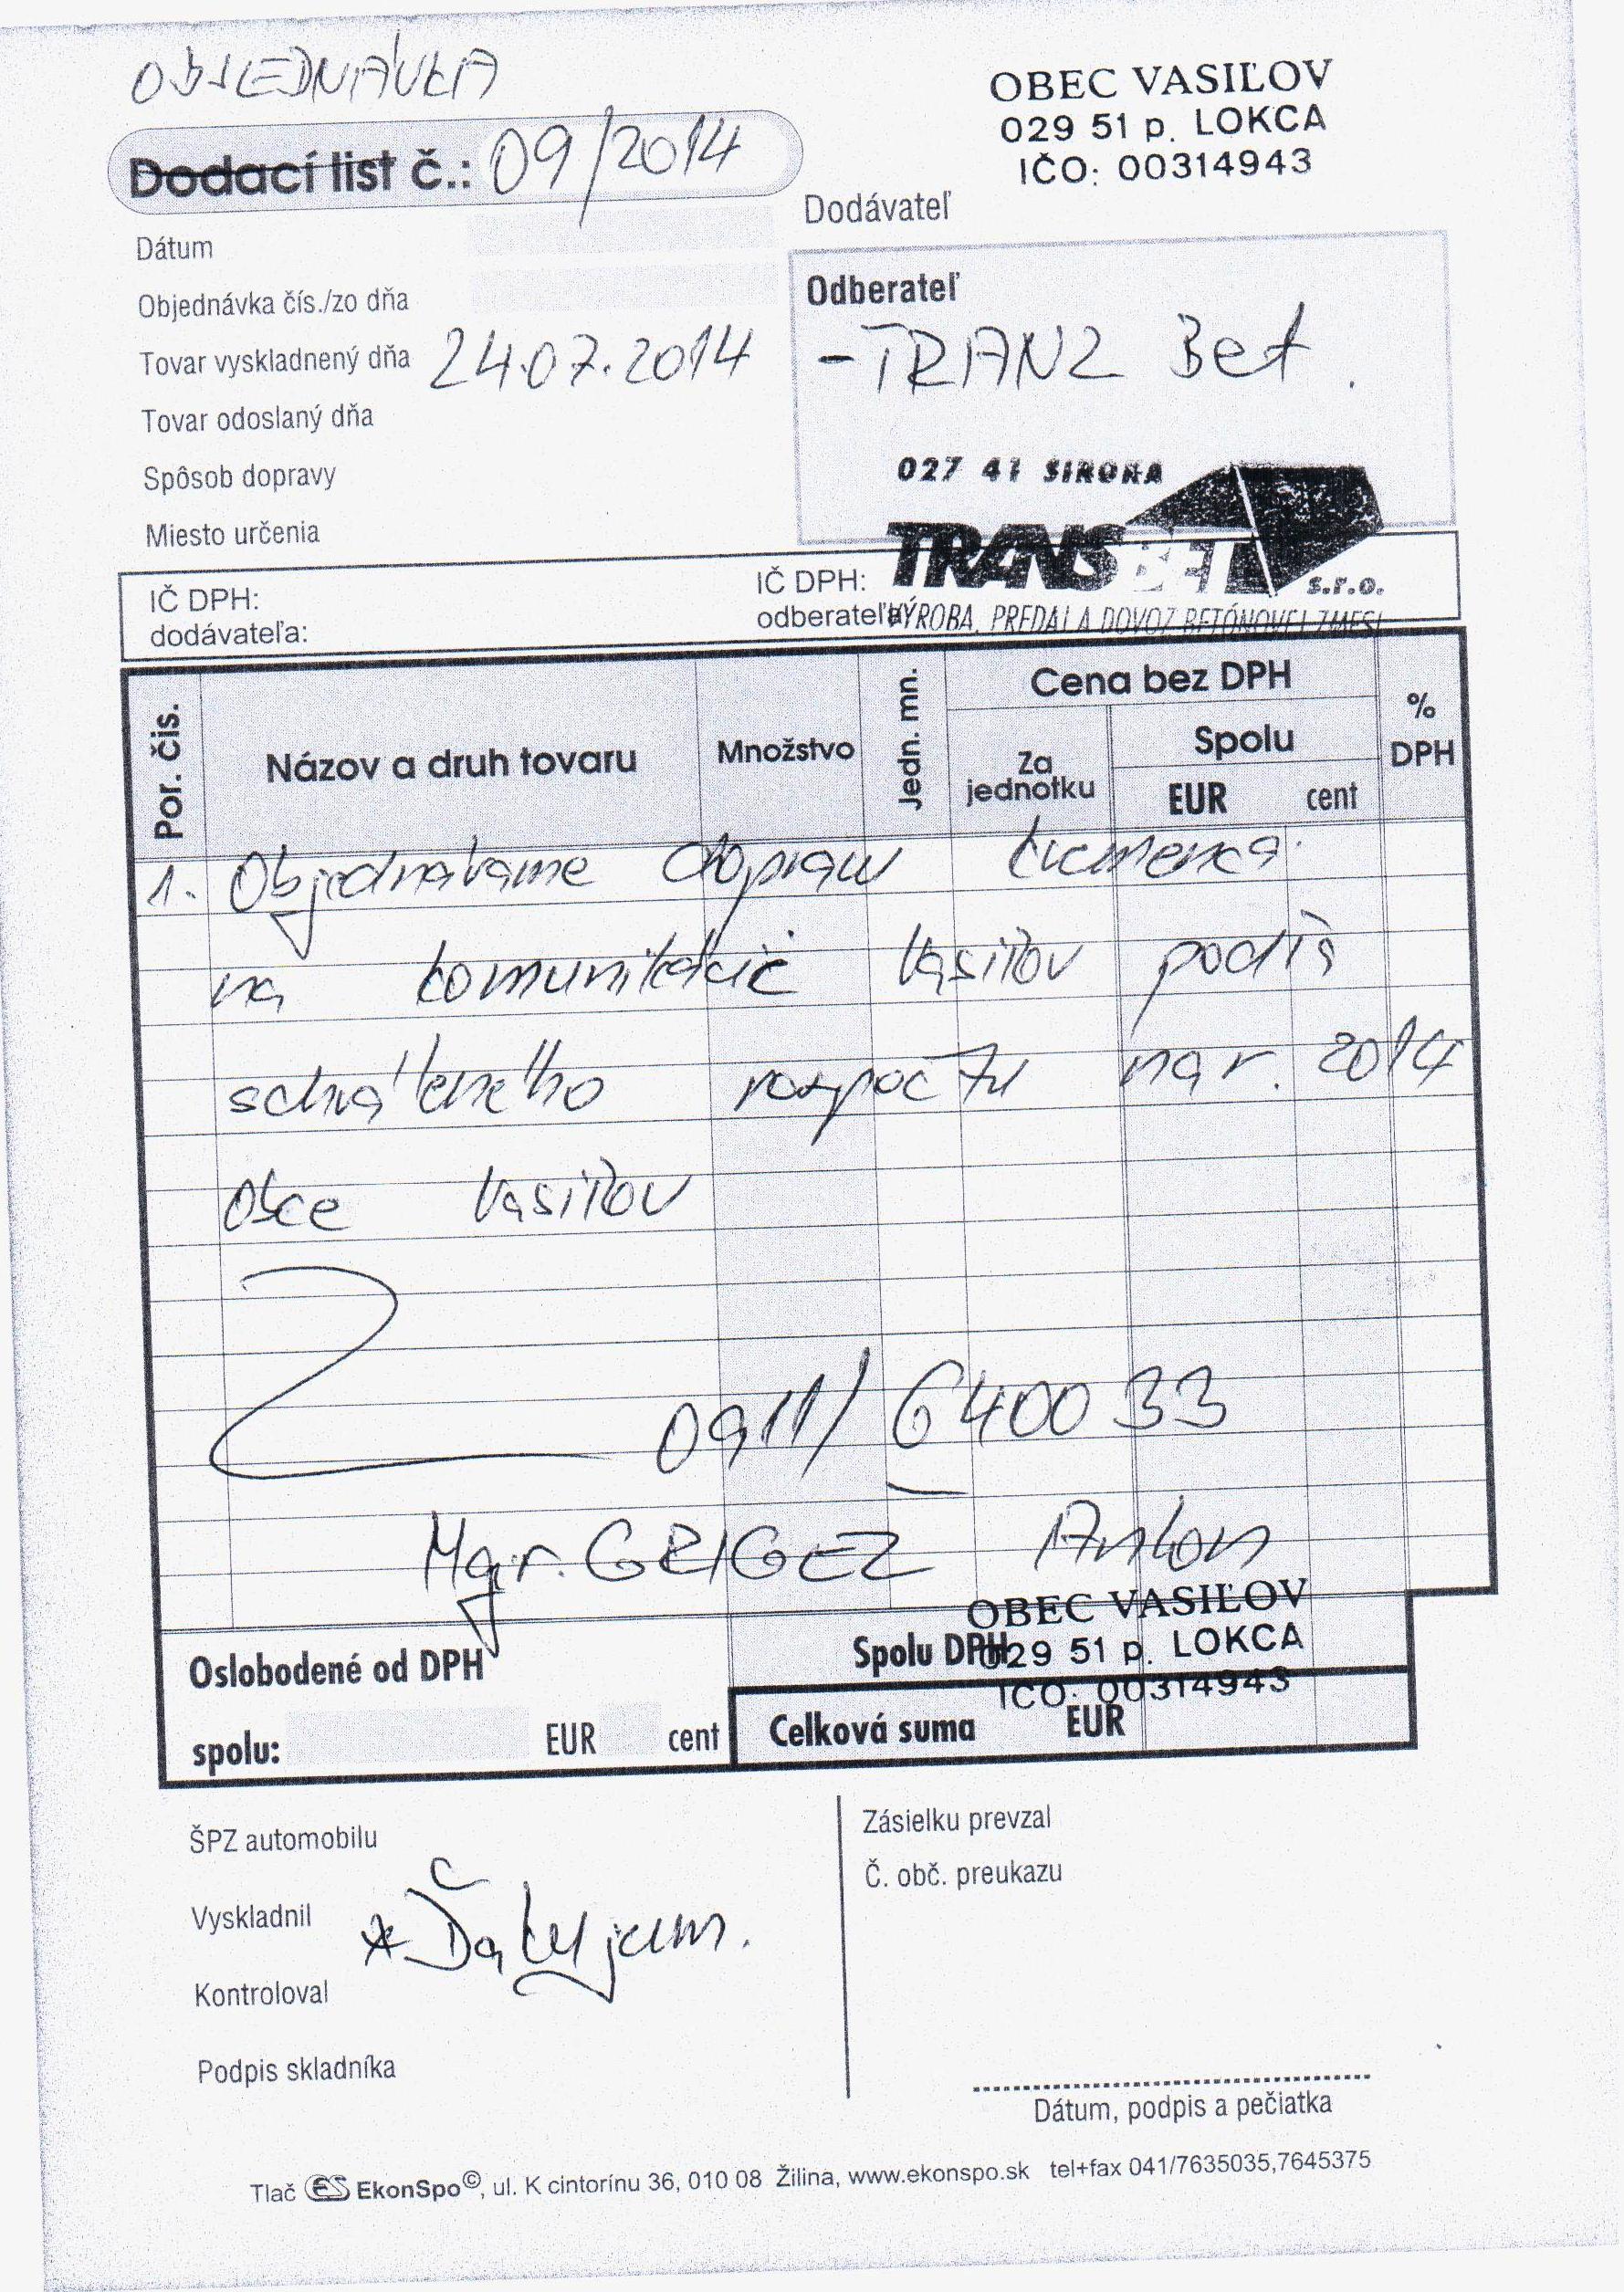 OBJEDNÁVKA
Dodací list č.: 09/2014
OBEC VASIĽOV
029 51 p. LOKCA
IČO: 00314943
Dodávateľ
Dátum
Objednávka čís./zo dňa
Tovar vyskladnený dňa 24.07.2014
Tovar odoslaný dňa
Spôsob dopravy
Miesto určenia
Odberateľ
-TRANZ Bet.
027 41 ŠIROKÁ
TRANSBET s.r.o.
VÝROBA, PREDAJ A DOVOZ BETÓNOVEJ ZMESI
IČ DPH:
dodávateľa:
IČ DPH:
odberateľa:
Por. čis.
Názov a druh tovaru
Množstvo
Jedn. mn.
Cena bez DPH
Za
jednotku
Spolu
EUR cent
%
DPH
1. Objednávame dopravu kameňa
na komunikácie Vasiľov podľa
schváleného rozpočtu na r. 2014
Obce Vasiľov
0911/640033
Mgr. GRIGEĽ Anton
OBEC VASIĽOV
029 51 p. LOKCA
IČO: 00314943
Oslobodené od DPH
spolu: EUR cent
Spolu DPH
Celková suma EUR
ŠPZ automobilu
Vyskladnil
Kontroloval
Podpis skladníka
*Ďakujem.
Zásielku prevzal
Č. obč. preukazu
Dátum, podpis a pečiatka
Tlač ES EkonSpo©, ul. K cintorínu 36, 010 08 Žilina, www.ekonspo.sk tel+fax 041/7635035,7645375